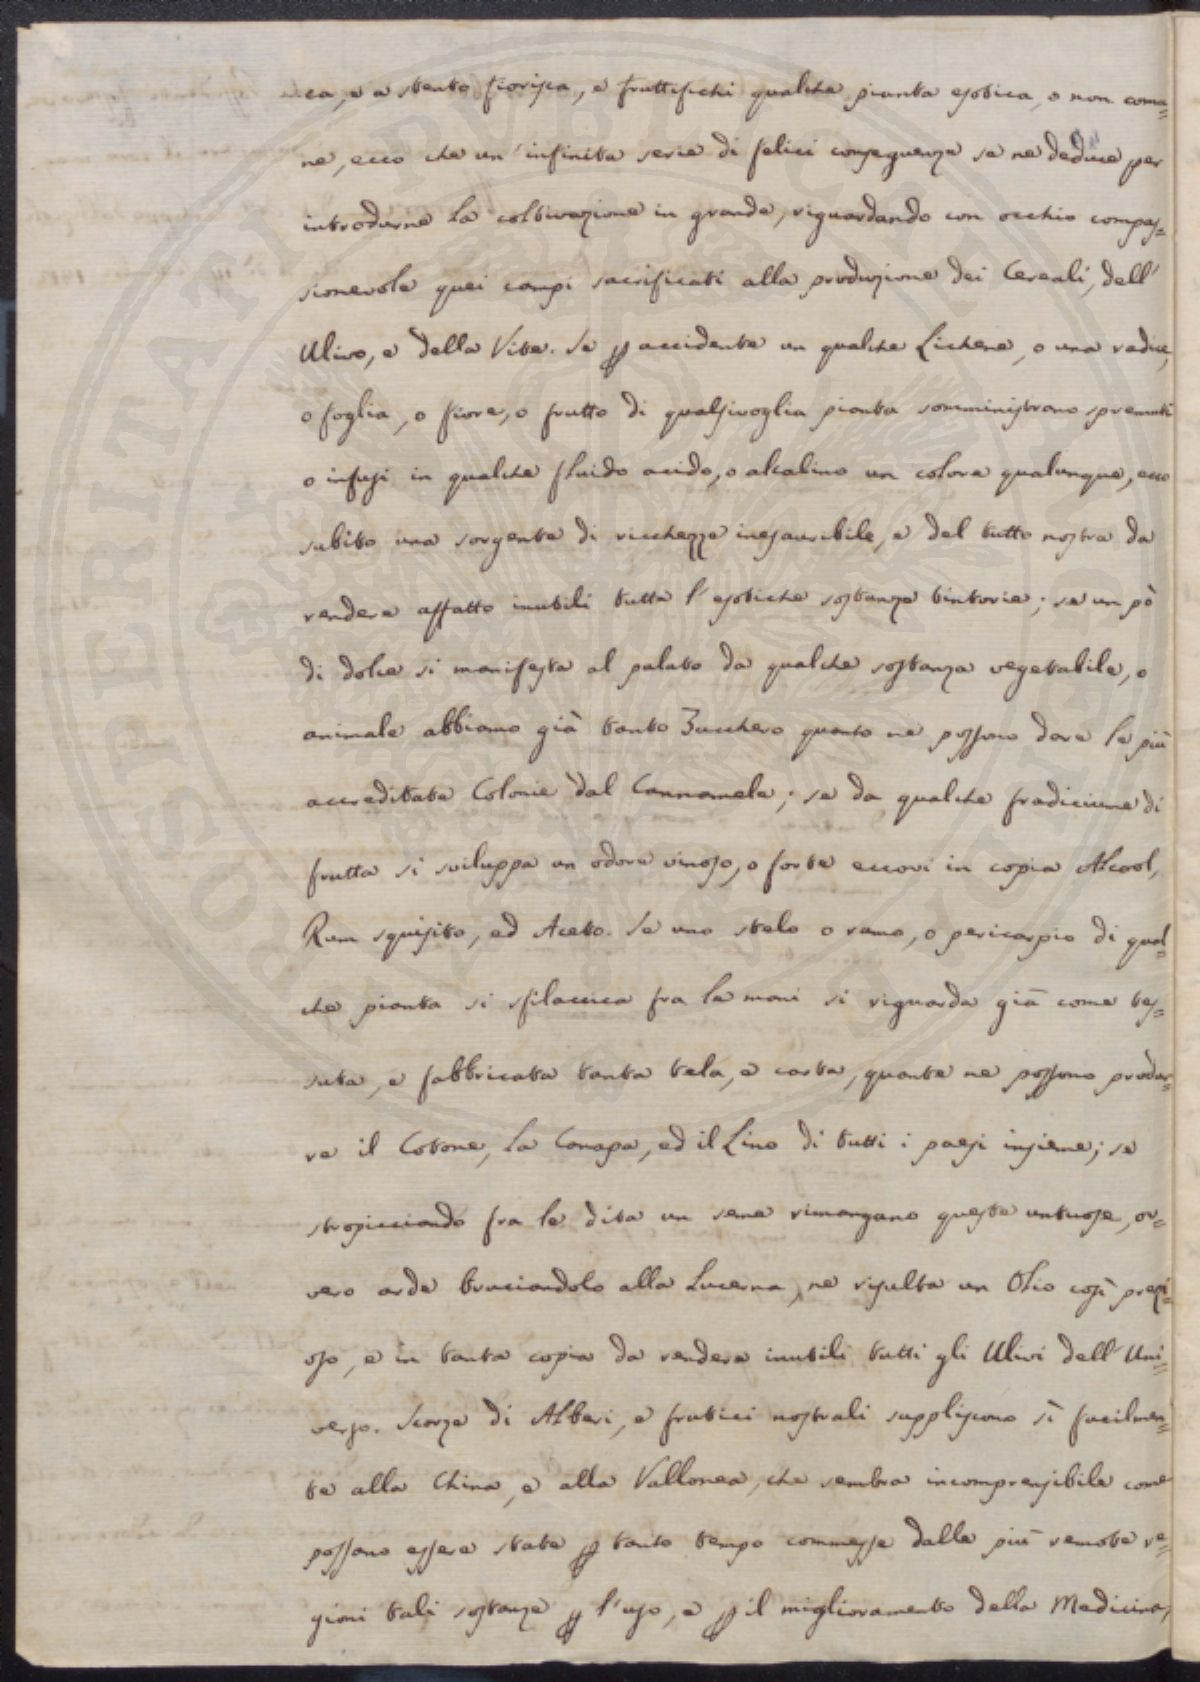 ca, e a stento fiorisca, e fruttifichi qualche pianta esotica, o non comu=
ne, ecco che un' infinita serie di felici conseguenze se ne deduce per
introdurne la coltivazione in grande, riguardando con occhio compas=
sionevole quei campi sacrificati alla produzione dei Cereali, dell'
Ulivo, e della Vite. Se p accidente un qualche Lichene, o una radice,
o foglia, o fiore, o frutto di qualsivoglia pianta somministrano spremuti
o infusi in qualche fluido acido, o alcalino un colore qualunque, ecco
subito una sorgente di ricchezze inesauribile, e del tutto nostra da
rendere affatto inutili tutte l' esotiche sostanze tintorie; se un pò
di dolce si manifesta al palato da qualche sostanza vegetabile, o
animale abbiamo già tanto Zucchero quanto ne possono dare le più
accreditate Colonie dal Cannamele; se da qualche fradiciume di
frutta si sviluppa un odore vinoso, o forte eccovi in copia Alcool,
Rum squisito, ed Aceto. Se uno stelo o ramo, o pericarpio di qual=
che pianta si sfilaccica fra le mani si riguarda già come tes=
suta, e fabbricata tanta tela, e carta, quante ne possono produr=
re il Cotone, la Canapa, ed il Lino di tutti i paesi insieme; se
stropicciando fra le dita un seme rimangano queste untuose, ov=
vero arde bruciandolo alla Lucerna, ne risulta un Olio così prezi=
oso, e in tanta copia da rendere inutili tutti gli Ulivi dell' Uni=
verso. Scorze di Alberi, e frutici nostrali suppliscono sì facilmen=
te alla China, e alla Vallonea, che sembra incomprensibile come
possano essere state p tanto tempo commesse dalle più remote re=
gioni tali sostanze p l' uso, e p il miglioramento della Medicina,
PVBLICAE
PROSPERITATI